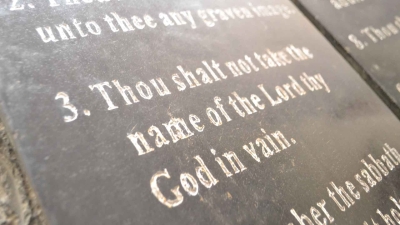 2. Thou
unto thee any graven image
3. Thou shalt not take the
name of the Lord thy
God in vain.
the sabbath
8. Thou